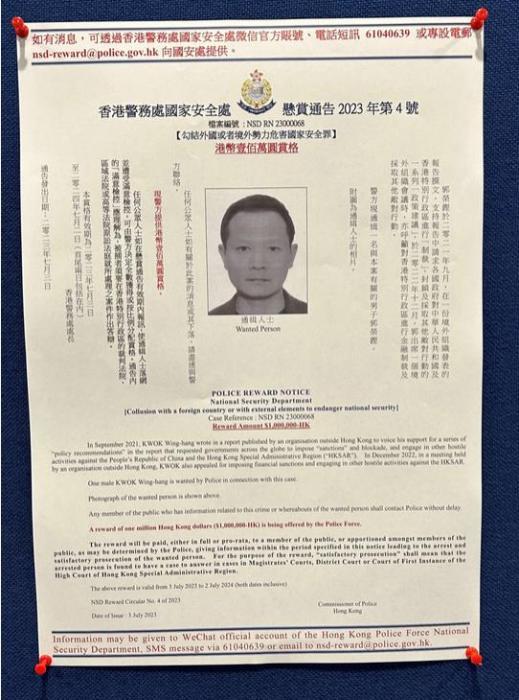 如有消息，可透過香港警務處國家安全處微信官方賬號、電話短訊 61040639 或專設電郵
nsd-reward@police.gov.hk 向國安處提供。
香港警務處國家安全處 懸賞通告 2023 年第 4 號
檔案編號：NSD RN 23000068
【勾結外國或者境外勢力危害國家安全罪】
港幣壹佰萬圓賞格
郭榮鏗於二零二一年九月，在一份境外組織發表的
報告撰文，支持報告中請求各國政府對中華人民共和國及
香港特別行政區進行「制裁」、封鎖及採取其他敵對行動的
一系列「政策建議」。於二零二二年十二月，郭出席一個境
外組織會議時，亦呼籲對香港特別行政區進行金融制裁及
採取其他敵對行動。
警方現通緝一名與本案有關的男子郭榮鏗。
附圖為通緝人士的相片。
通緝人士
Wanted Person
任何公眾人士如有關於此案的消息或其下落，請盡速與警
方聯絡。
現警方提供港幣壹佰萬圓賞格。
任何公眾人士如在懸賞通告有效期內報訊，使通緝人士落網
並遭完滿檢控，可由警方決定全數獲得或按比例分配賞格。通告內
的「滿意檢控」應理解為，被捕者須要在香港特別行政區的裁判法院、
區域法院或高等法院原訟法庭就所處理之案件作出答辯。
本賞格有效期為二零二三年七月三日
至二零二四年七月二日（首尾兩日包括在內）
香港警務處處長
通告發出日期：二零二三年七月三日
POLICE REWARD NOTICE
National Security Department
[Collusion with a foreign country or with external elements to endanger national security]
Case Reference : NSD RN 23000068
Reward Amount $1,000,000-HK
In September 2021, KWOK Wing-hang wrote in a report published by an organisation outside Hong Kong to voice his support for a series of
"policy recommendations" in the report that requested governments across the globe to impose "sanctions" and blockade, and engage in other hostile
activities against the People's Republic of China and the Hong Kong Special Administrative Region ("HKSAR"). In December 2022, in a meeting held
by an organisation outside Hong Kong, KWOK also appealed for imposing financial sanctions and engaging in other hostile activities against the HKSAR.
One male KWOK Wing-hang is wanted by Police in connection with this case.
Photograph of the wanted person is shown above.
Any member of the public who has information related to this crime or whereabouts of the wanted person shall contact Police without delay.
A reward of one million Hong Kong dollars ($1,000,000-HK) is being offered by the Police Force.
The reward will be paid, either in full or pro-rata, to a member of the public, or apportioned amongst members of the
public, as may be determined by the Police, giving information within the period specified in this notice leading to the arrest and
satisfactory prosecution of the wanted person. For the purpose of the reward, "satisfactory prosecution" shall mean that the
arrested person is found to have a case to answer in cases in Magistrates' Courts, District Court or Court of First Instance of the
High Court of Hong Kong Special Administrative Region.
The above reward is valid from 3 July 2023 to 2 July 2024 (both dates inclusive)
NSD Reward Circular No. 4 of 2023
Commissioner of Police
Hong Kong
Date of Issue : 3 July 2023
Information may be given to WeChat official account of the Hong Kong Police Force National
Security Department, SMS message via 61040639 or email to nsd-reward@police.gov.hk.